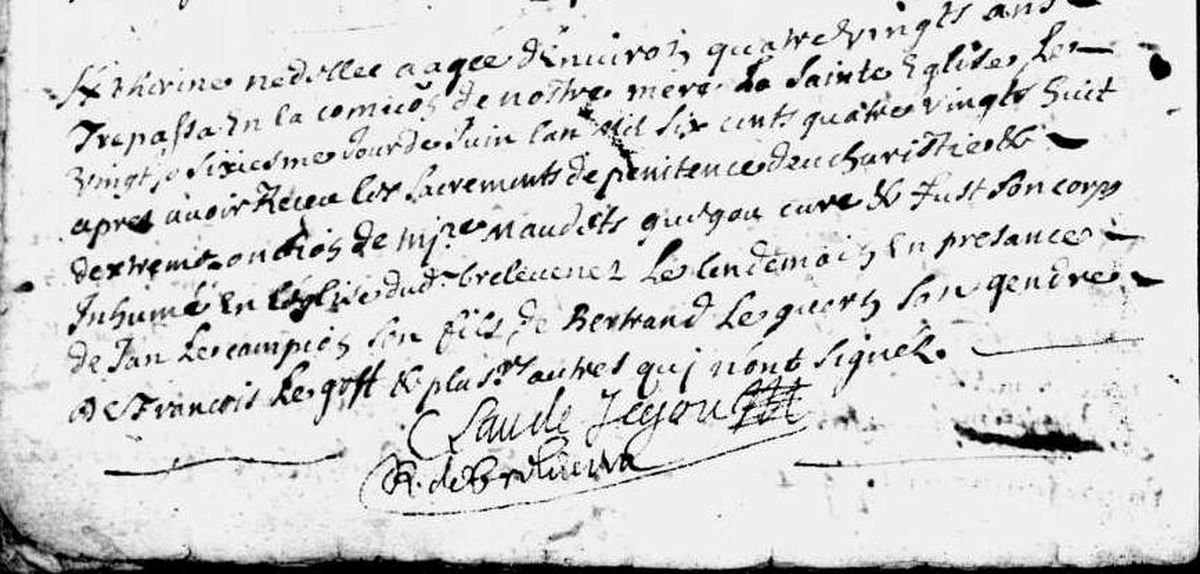 Katherine nedellec aagée d'environ quatre vingts ans
Trepassa En la comion de nostre mere La Sainte Eglise Le
vingt Sixiesme Jour de Juin lan Mil Six cents quatre vingts huit
apres avoir Receu les Sacrements de penitence d'eucharistie &
dextreme onction de mre Maudets gueg cure & fust Son corps
Inhumé En l'eglise dud. brelevenez Le lendemain En presance
de Jan Le campion Son fils de Bertrand Le quern Son gendre
De Francois Le goff & plusrs autres quj n'ont Signéz.
Claude Jegou
R. de